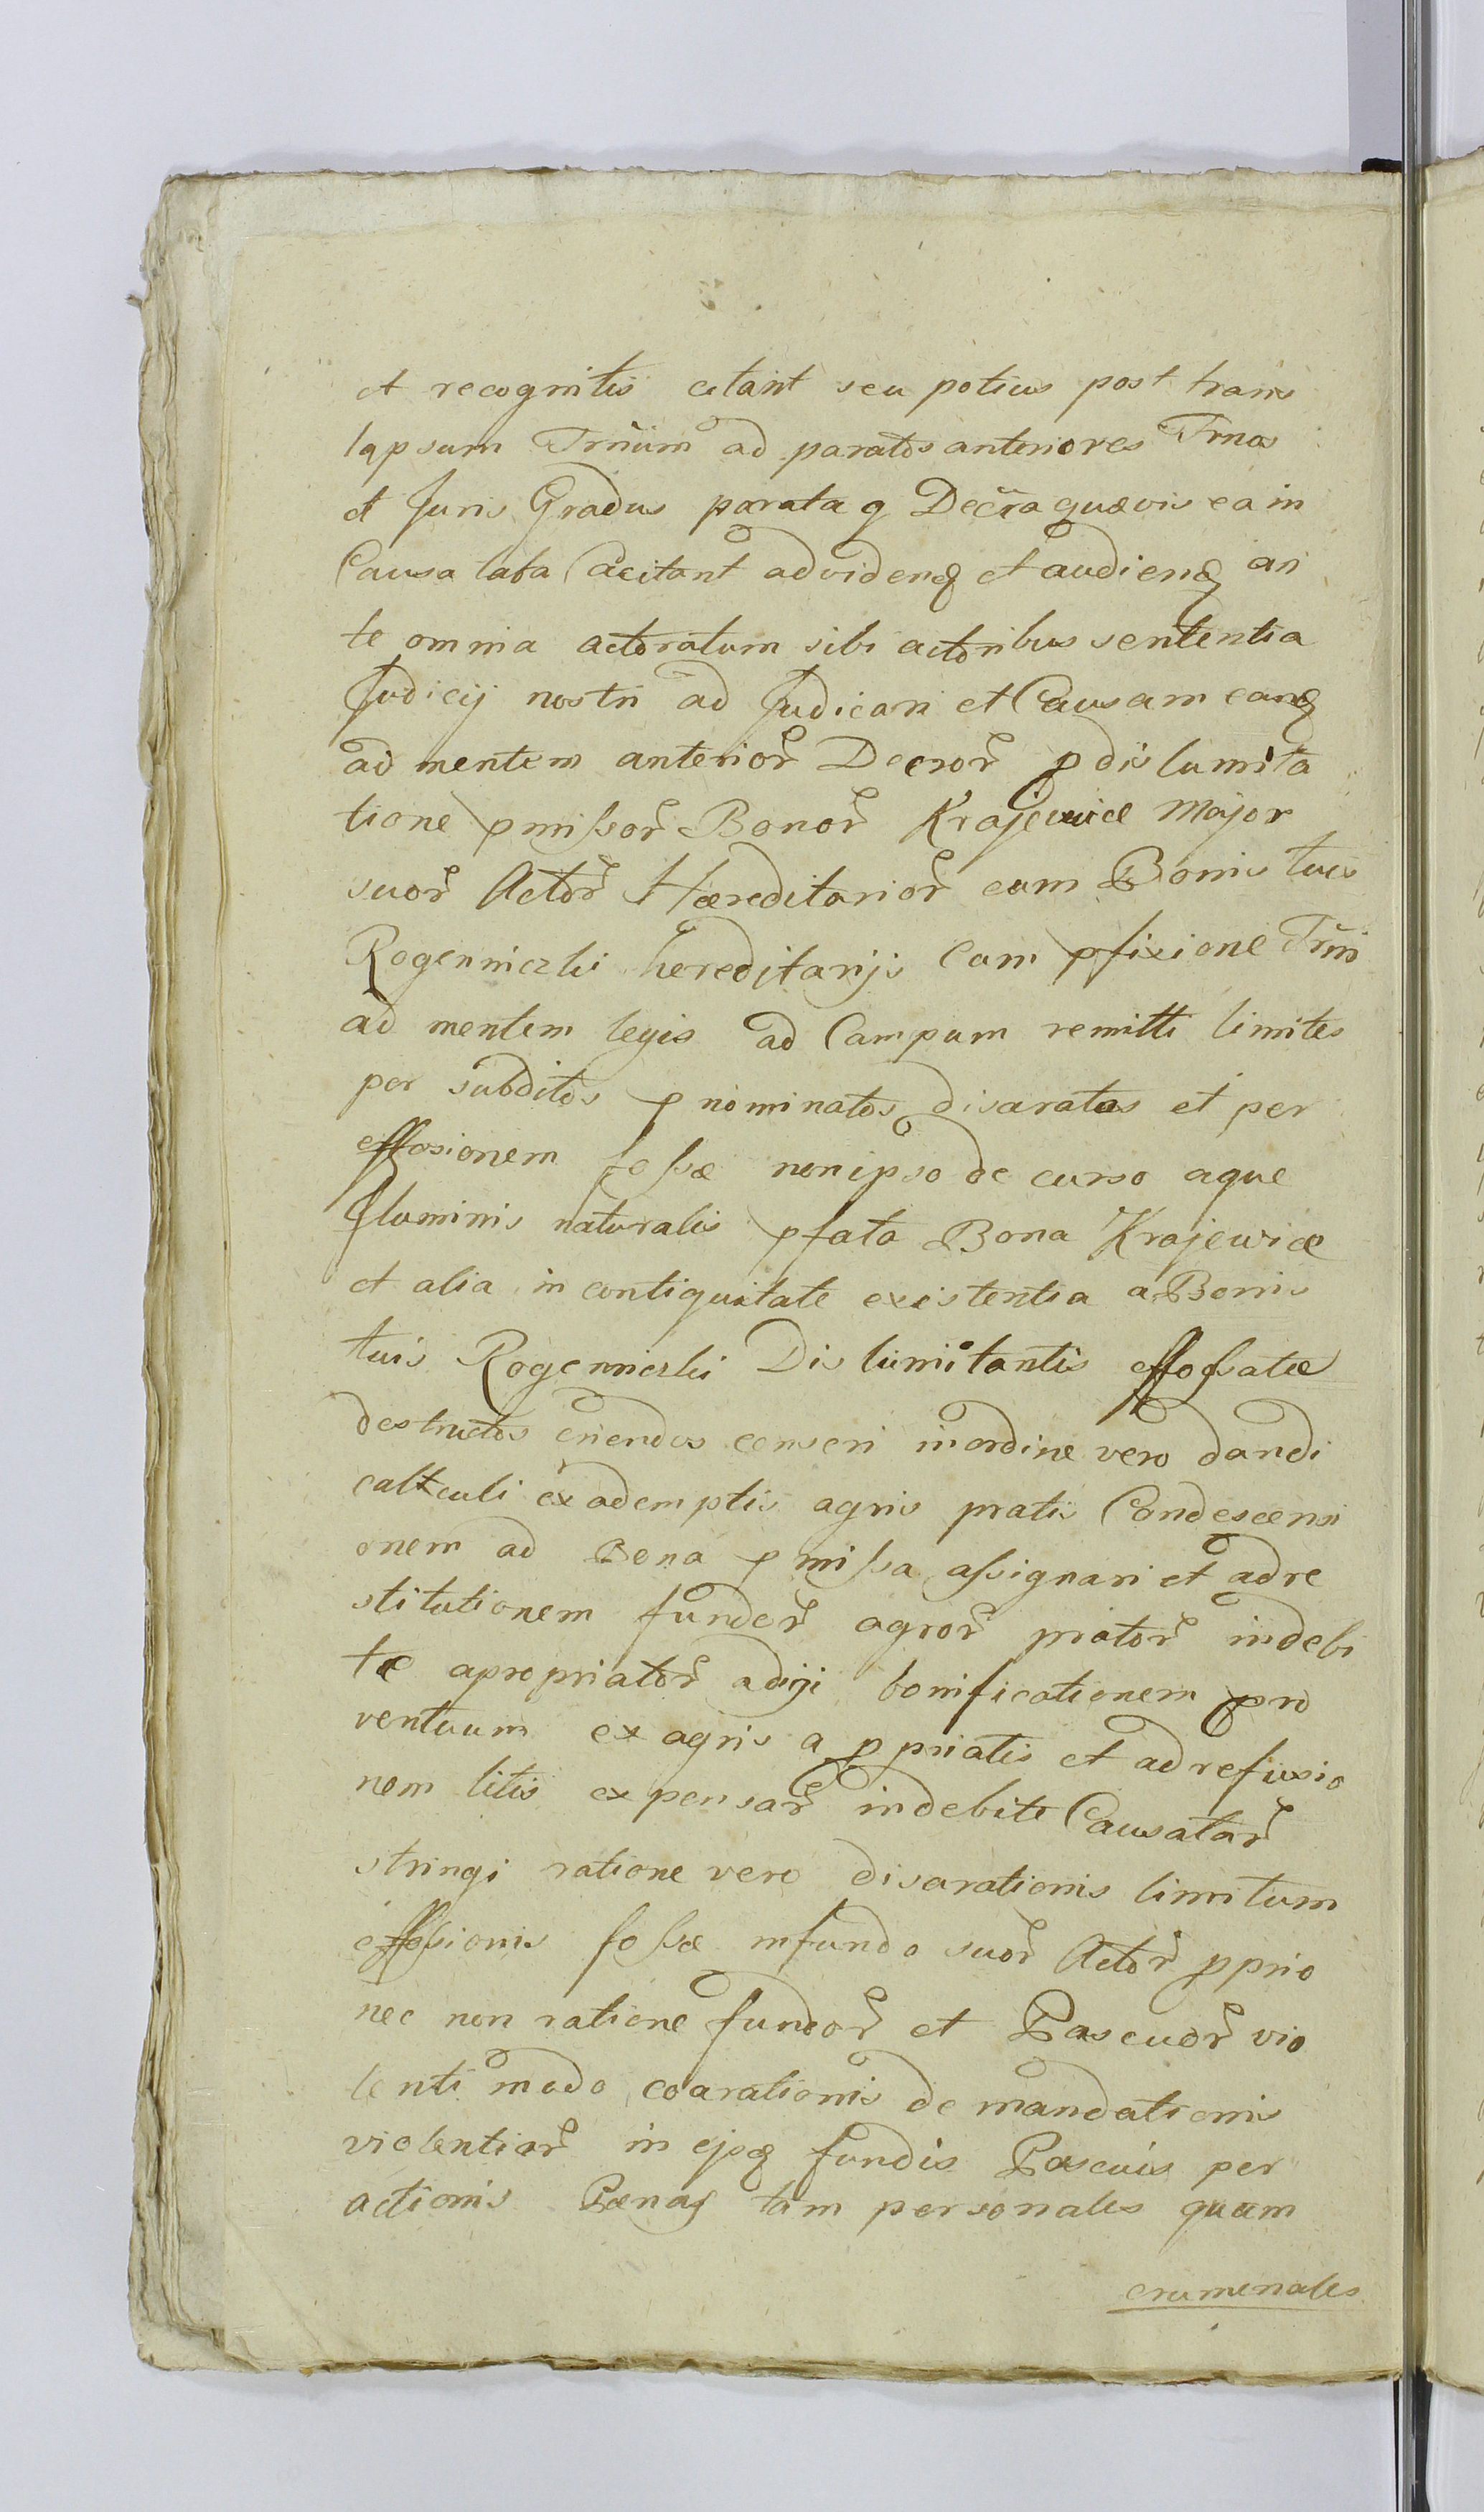 et recognitis citant seu potius post trans
lapsum Trnum ad paratos anteriores Trnos
et Juris Gradus parata q Decra quævis ea in
Causa lata Acitant ad videnq et audienq an
te omnia actoratum sibi actoribus sententia
Judicij nostri ad Judicari et Causam eanq
ad mentem anterior Decror p dislimita
tione pmissor Bonor Krajewice Major
suor Actor Hæreditarior cum Bonis tuis
Rogenniczki hereditarijs Cum pfixione Trni
ad mentem legis ad Campum remitti limites
per subditos pnominatos disaratos et per
effosionem fossæ non ipso de curso aque
fluminis naturalis pfata Bona Krajewice
et alia in contiquitate existentia a Bonis
tuis Rogenniczki Dislimitantis effossatæ
destructos eriendos censeri in ordine vero dandi
calculi ex ademptis agris pratis Condescensi
onem ad Bona pmissa assignari et ad re
stitutionem fundor agror prator indebi
tæ apropriator adigi bonificationem pro
ventuum ex agris a ppriatis et ad refusio
nem litis expensar indebite Causatar
stringi ratione vero disarationis limitum
effosionis fossæ in fundo suor Actor pprio
nec non ratione fundor et Pascuor vio
lenti modo coarationis de mandationis
violentiar in ejsq fundis Pascuis per
actionis Pænas tam personales quam
crumenales